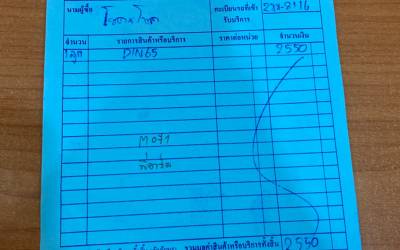 นามผู้ซื้อ
ทะเบียนรถที่เข้ารับบริการ
จำนวน รายการสินค้าหรือบริการ ราคาต่อหน่วย จำนวนเงิน
1 ลูก DIN65 2550
M071
รวมมูลค่าสินค้าหรือบริการทั้งสิ้น 2550